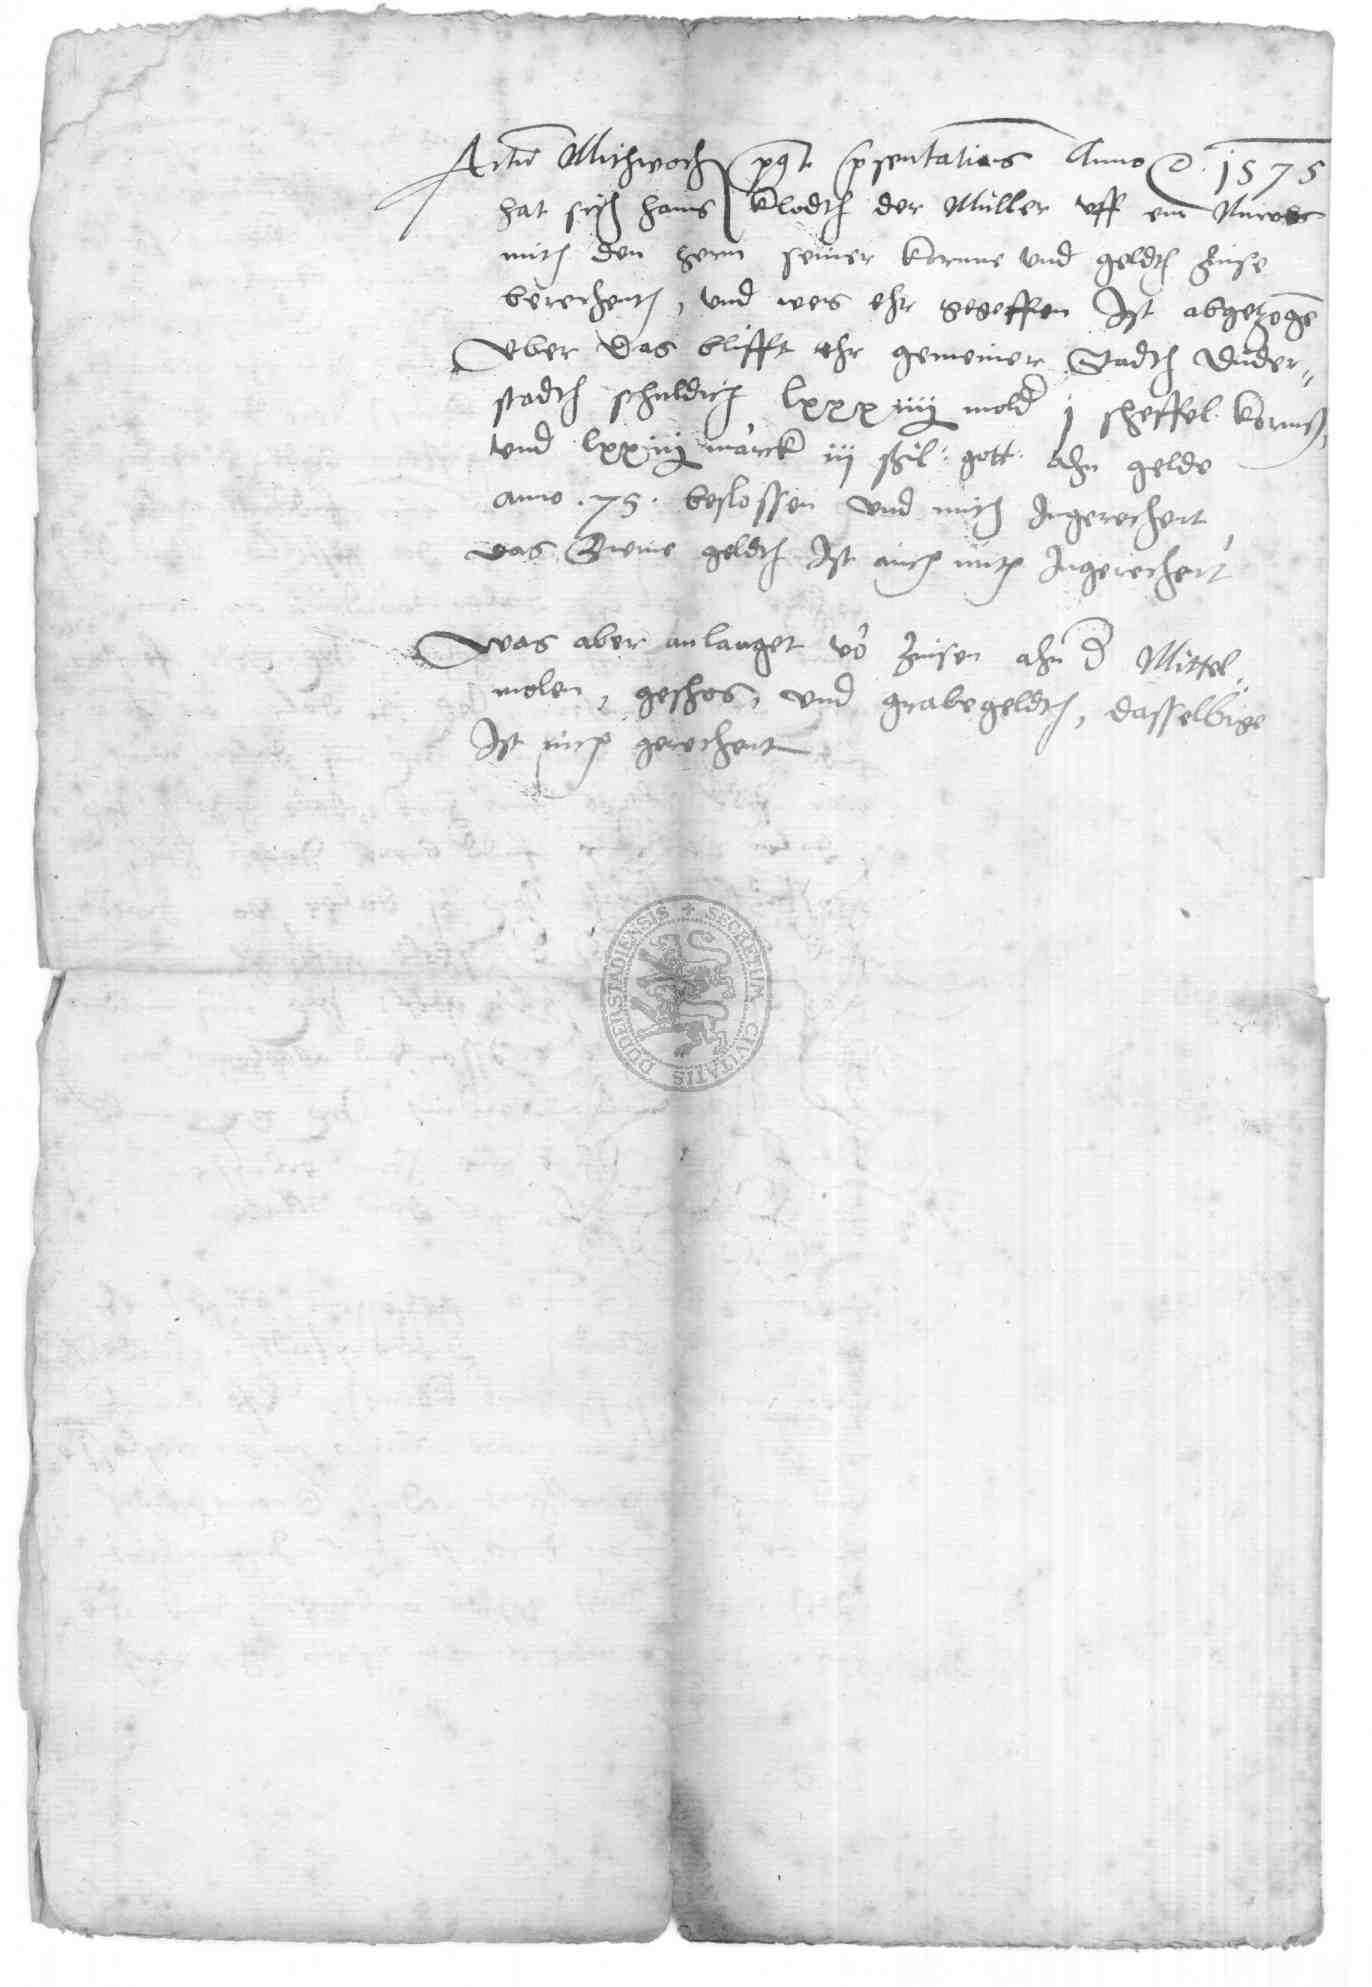 Actu Mithwoch post presentationis Anno D. 1575
hat sich Hans Klodth der Müller uff ein Nuwes
mith den Hern seiner Kornne und geldth Zinse
berechenth, und wes ehr gegeffen Ist abgetzoge
Uber das blifft ehr gemeiner Stadth Duder-
stadth schuldich lxxxiiij mold j scheffel Korns,
und lxxiiij marck iij schil. gott. ahn gelde
anno .75. beslossen und mith Ingerechent
das geldth Ist auch mith Ingerechent
Was aber anlanget vo Zinsen ahn d Mittel-
molen, geschos, und grabegeldth, dasselbige
Ist nich gerechent
SECRETUM CIVITATIS DUDERSTADIENSIS